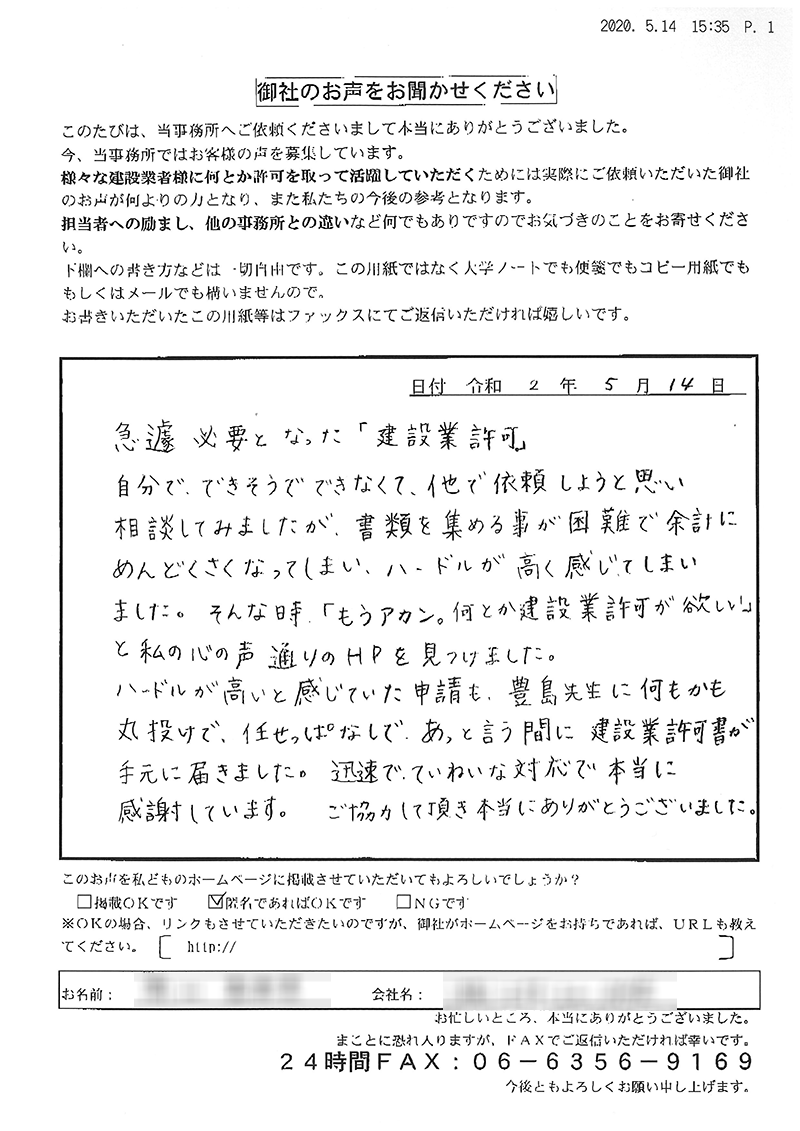 2020. 5.14 15:35 P. 1
御社のお声をお聞かせください
このたびは、当事務所へご依頼くださいまして本当にありがとうございました。
今、当事務所ではお客様の声を募集しています。
様々な建設業者様に何とか許可を取って活躍していただくためには実際にご依頼いただいた御社
のお声が何よりの力となり、また私たちの今後の参考となります。
担当者への励まし、他の事務所との違いなど何でもありですのでお気づきのことをお寄せくださ
い。
下欄への書き方などは一切自由です。この用紙ではなく大学ノートでも便箋でもコピー用紙でも
もしくはメールでも構いませんので。
お書きいただいたこの用紙等はファックスにてご返信いただければ嬉しいです。
日付 令和 2 年 5 月 14 日
急遽 必要となった「建設業許可」
自分で、できそうでできなくて、他で依頼しようと思い
相談してみましたが、書類を集める事が困難で余計に
めんどくさくなってしまい、ハードルが高く感じてしまい
ました。そんな時、「もうアカン。何とか建設業許可が欲しい」
と私の心の声通りのHPを見つけました。
ハードルが高いと感じていた申請も、豊島先生に何もかも
丸投げで、任せっぱなしで、あっと言う間に建設業許可書が
手元に届きました。迅速で、ていねいな対応で本当に
感謝しています。 ご協力して頂き本当にありがとうございました。
このお声を私どものホームページに掲載させていただいてもよろしいでしょうか？
□掲載OKです ☑匿名であればOKです □NGです
※OKの場合、リンクもさせていただきたいのですが、御社がホームページをお持ちであれば、URLも教え
てください。 [ http:// ]
お名前： 会社名：
お忙しいところ、本当にありがとうございました。
まことに恐れ入りますが、FAXでご返信いただければ幸いです。
24時間FAX：06－6356－9169
今後ともよろしくお願い申し上げます。